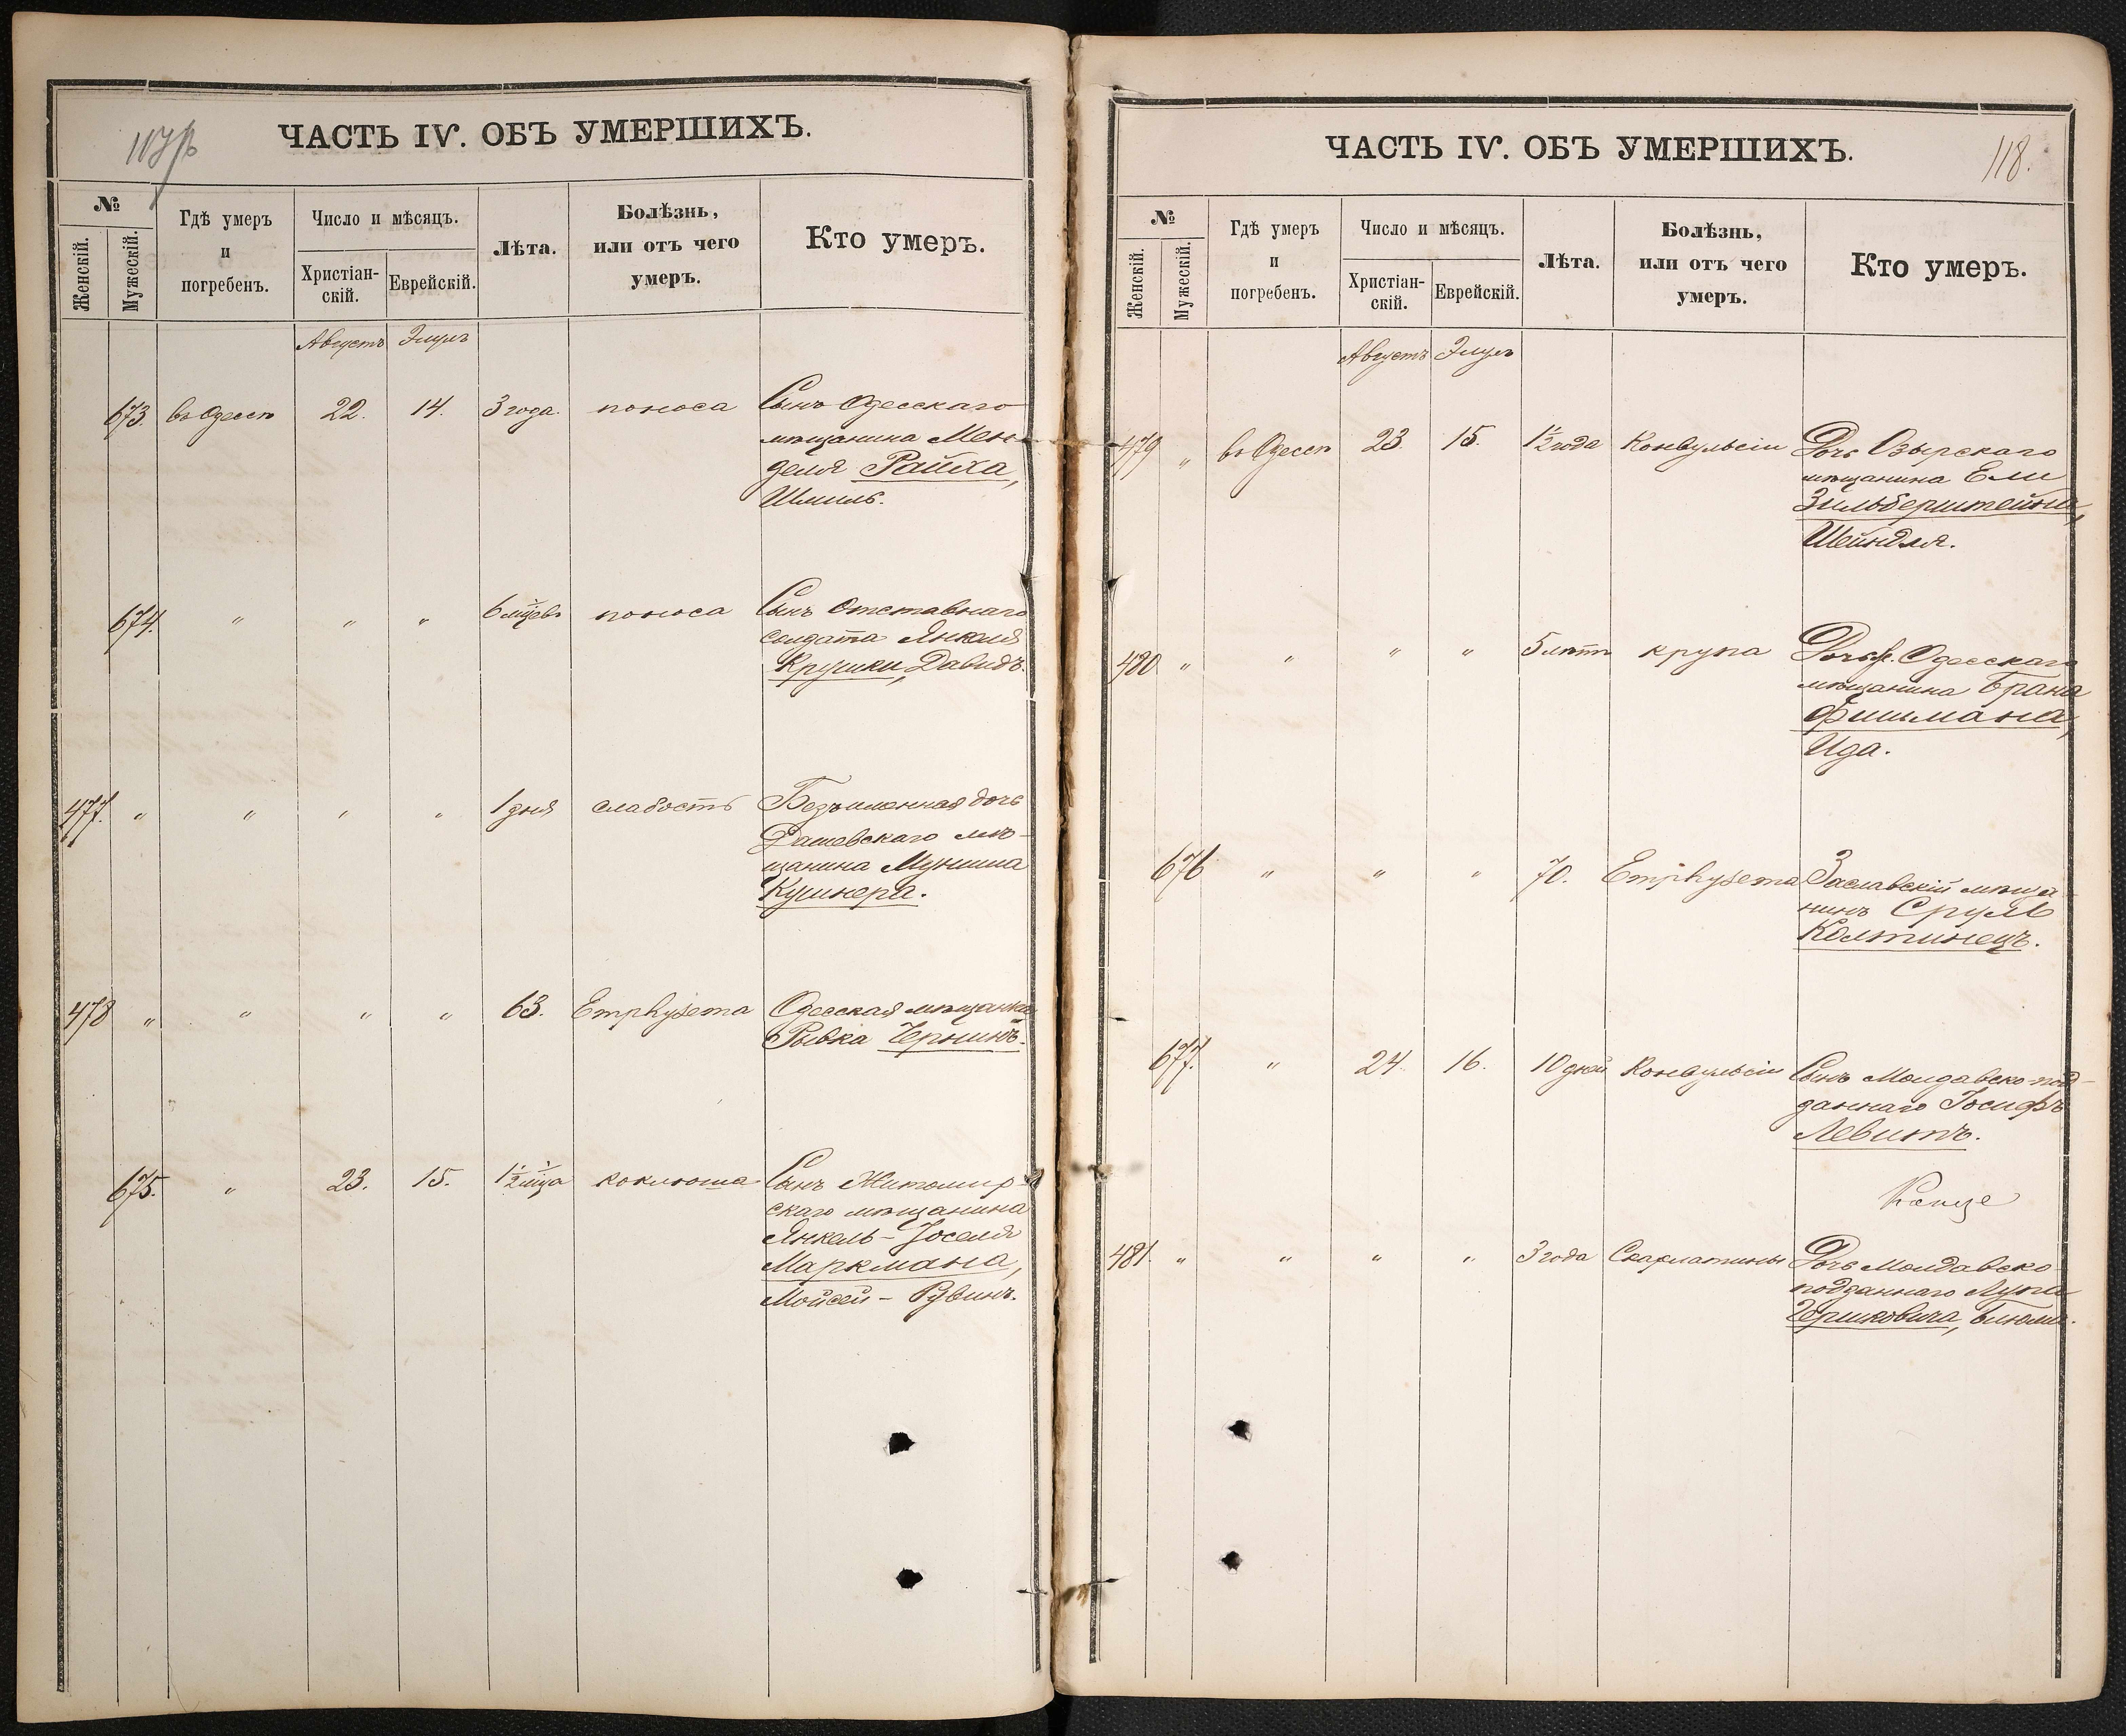 ЧАСТЬ IV. ОБЪ УМЕРШИХЪ.
№
Женскій.
Мужескій.
Гдѣ умеръ
и
погребенъ.
Число и мѣсяцъ.
Христіан-
скій.
Еврейскій.
Лѣта.
Болѣзнь,
или отъ чего
умеръ.
Кто умеръ.
Августъ Элулъ
673. въ Одессѣ 22. 14. 3 года. поноса Сынъ Одесскаго
мѣщанина Мен-
деля Райха,
Шмиль.
674. " " " 6 мцевъ поноса Сынъ Отставнаго
солдата Янкеля
Крушки, Давидъ.
477. " " " " 1 дня слабость Безъименная дочь
Дашевскаго мѣ-
щанина Муниша
Кушнера.
478 " " " " 63. Emphysema Одесская мѣщанка
Рывка Чернинъ.
675. " 23. 15. 1½ мца коклюша Сынъ Житомир-
скаго мѣщанина
Янкель-Іоселя
Маркмана,
Мойсей-Рувинъ.
ЧАСТЬ IV. ОБЪ УМЕРШИХЪ.
118.
№
Женскій.
Мужескій.
Гдѣ умеръ
и
погребенъ.
Число и мѣсяцъ.
Христіан-
скій.
Еврейскій.
Лѣта.
Болѣзнь,
или отъ чего
умеръ.
Кто умеръ.
Августъ Элулъ
479 " въ Одессѣ 23. 15. 1½ года Конвульсіи Дочь Озырскаго
мѣщанина Ели
Зильберштейна,
Шейндля.
480 " " " " 5 лѣтъ крупа Дочь Одесскаго
мѣщанина
Фишмана,
Ида.
676 " " " 70. Emphysema Заславскій мѣща-
нинъ Сруль
Колтинецъ.
677. " 24. 16. 10 дней Конвульсіи Сынъ Молдавско-под-
даннаго Іосифъ
Левитъ.
481. " " " " 3 года Скарлатины Дочь Молдавско-
подданнаго Лупа
Гершковича, Блюма.